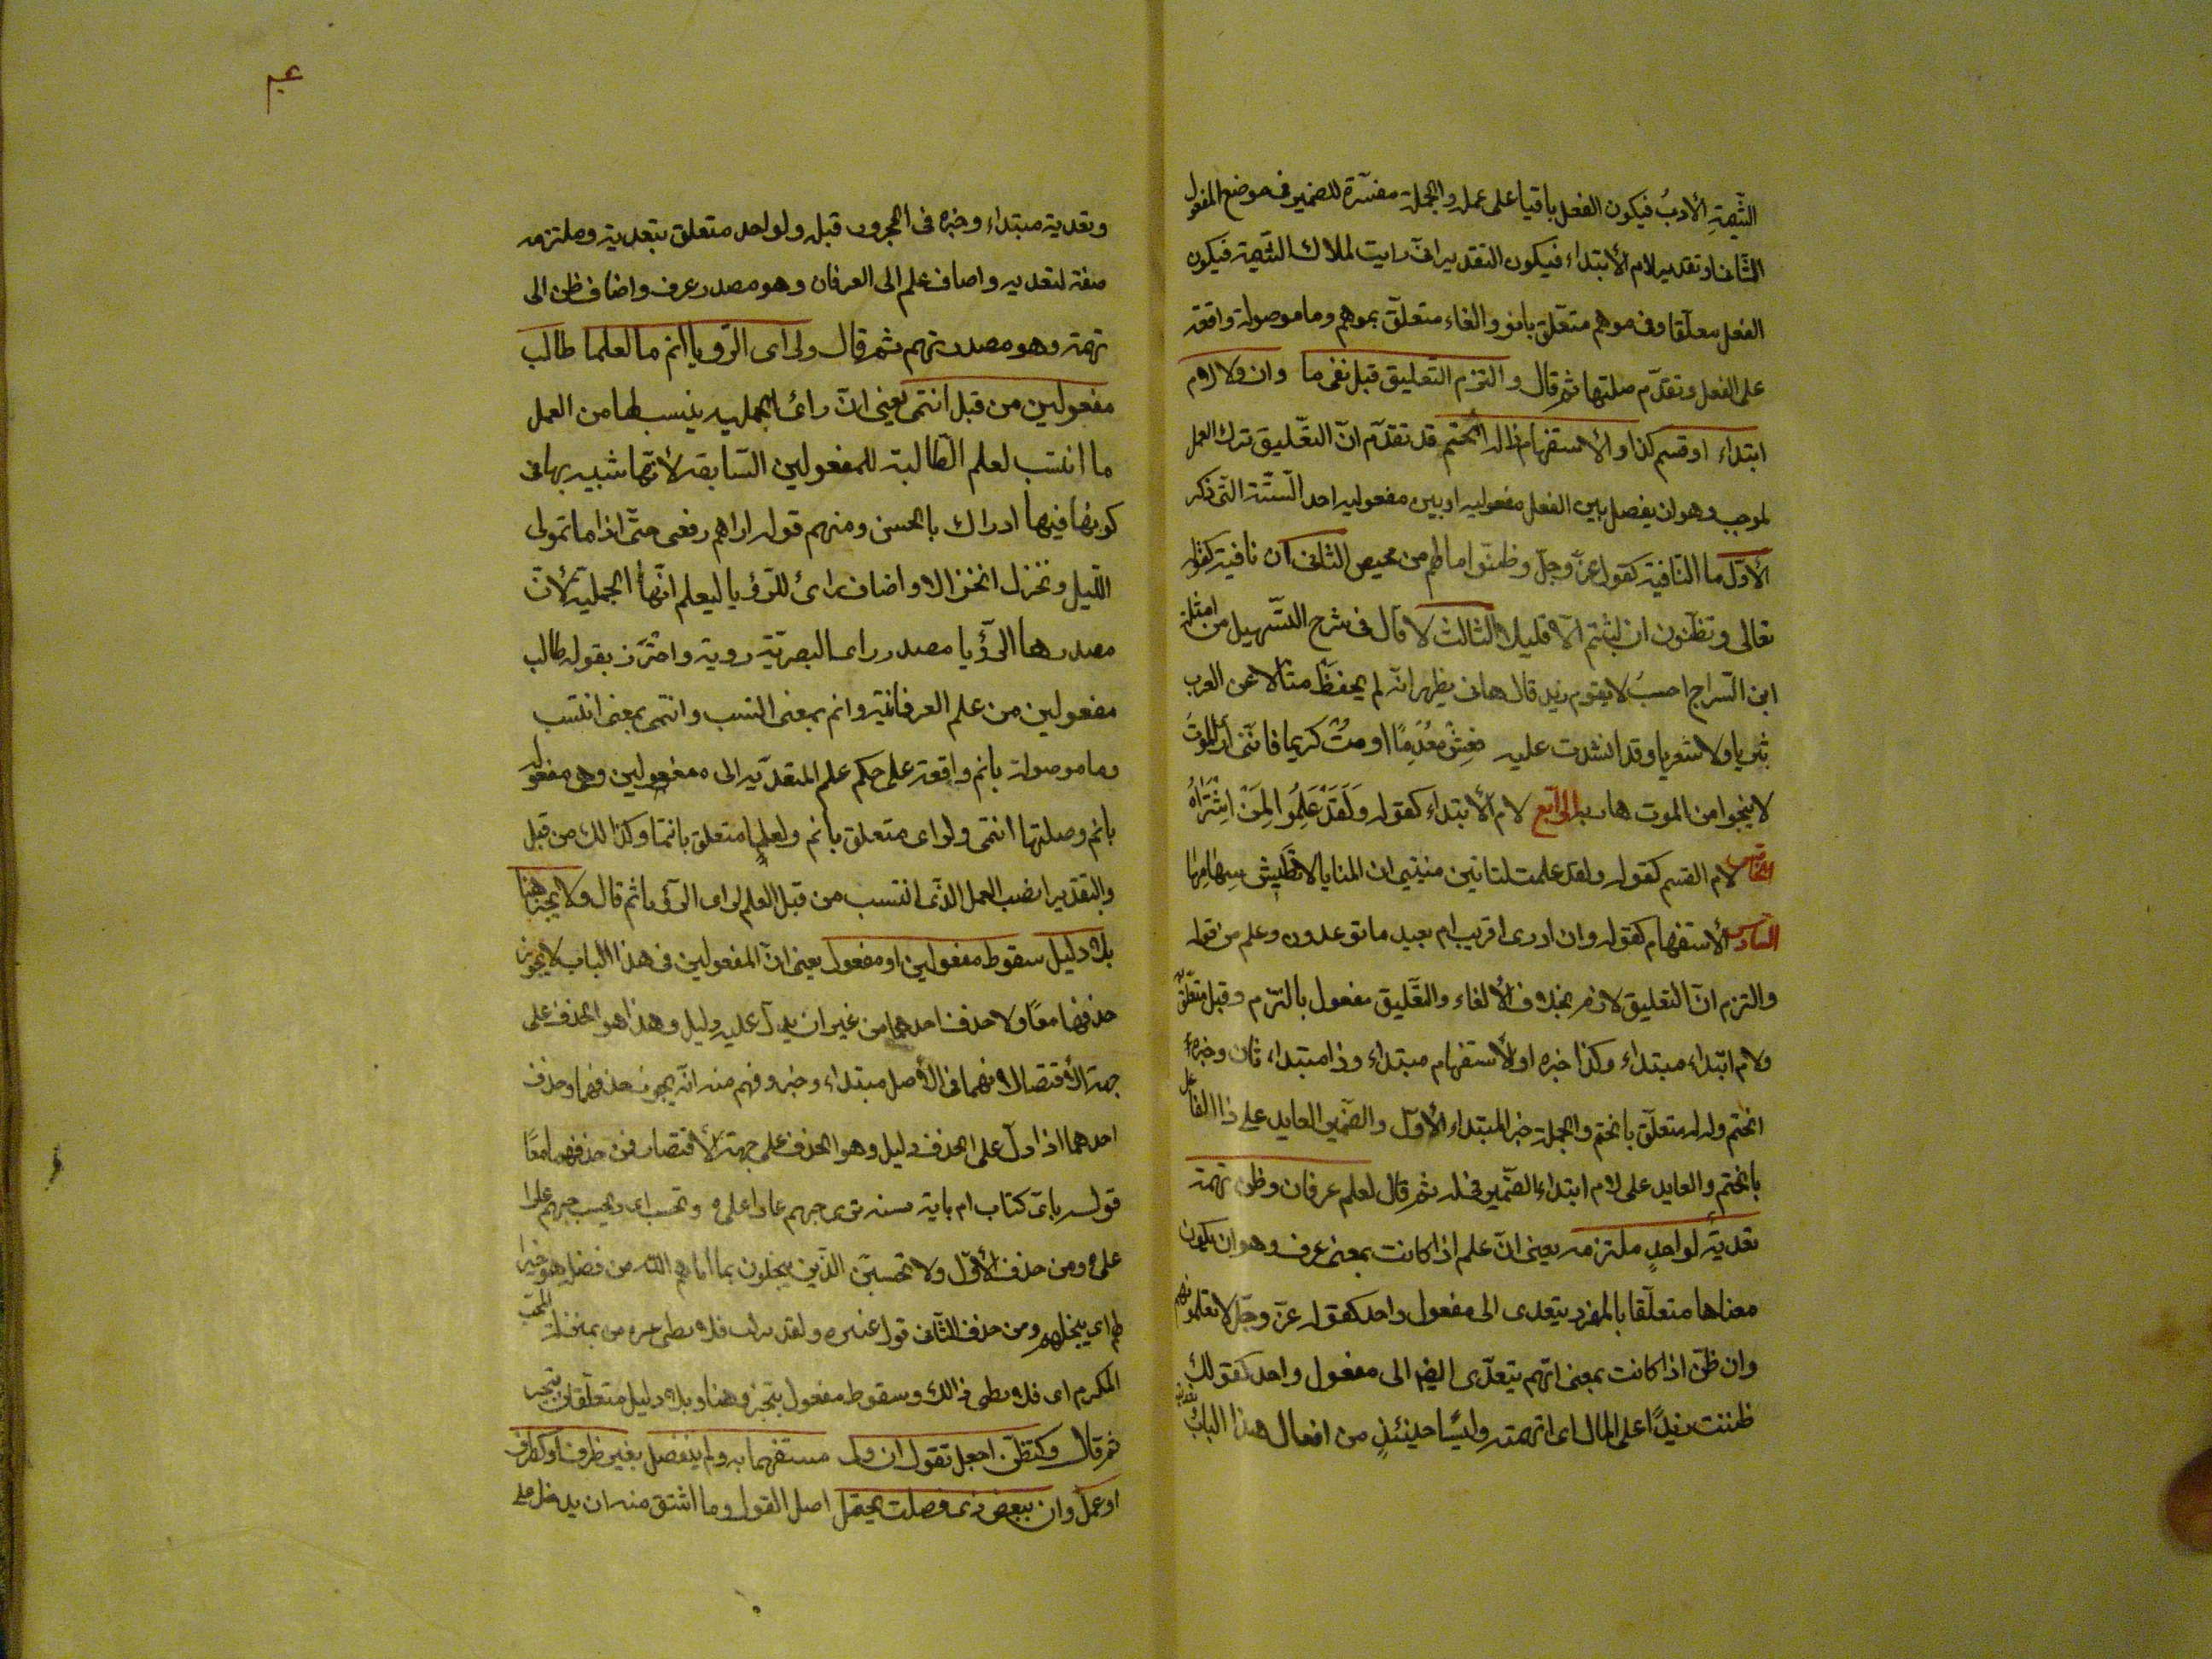 الشّيمةِ الأدبُ فيكون الفعل باقيا على عمله والجملة مفسّرة للضمير في موضع المفعول
الثّانى او تقدير لام الأبتداء فيكون التقدير انّى رايت لملاك الشّيمة فيكون
الفعل معلّقا وفى موهم متعلّق بانو والغاء متعلّق بموهم وما موصولة واقعة
على الفعل وتقدّم صلتها ثم قال والتزم التّعليق قبل نفى ما وان ولا لام
ابتداء او قسم كذا والأستفهام ذا له انحتم قد تقدّم انّ التعّليق ترك العمل
لموجب وهو ان يفصل بين الفعل مفعوليه او بين مفعوليه احد السّتّة الّتى ذكر
الأوّل ما النّافية كقوله عزّ وجلّ وظنّوا ما لهم من محيص الثانى ان نافية كقوله
تعالى وتظنّون ان لبثتم الّا قليلا الثالث لا قال فى شرح التّسهيل من امثلة
ابن السّراج احسبُ لا يقوم زيد قال هانى يظهر انّه لم يحفظ مثالا عن العرب
نثريا ولا شعريا وقد انشدت عليه فعِشْ مُعْدِمًا او مُتْ كريما فانّنى أرى الموتَ
لا ينجوا من الموت هاربا الرّابع لام الأبتداء كقوله وَلَقَدْ عَلِمُوا لَمَنِ اشْتَرَاهُ
الخامس لام القسم كقوله ولقد علمت لتاتين منيتى ان المنايا لا تَطِيش سِهامها
السّادس الأستفهام كقوله وان ادرى اقريب ام بعيد ما توعدون وعلم من قوله
والتزم انّ التعليق لازم بخلاف الألغاء والتّعليق مفعول بالتزم وقبل متعلّق به
ولام ابتداء مبتداء وكذا خبره او الأستفهام مبتداء وذا مبتداء ثان وخبره
انحتم وله له متعلّق بانحتم والجملة خبر المبتداء الأوّل والضّمير العايد على ذا الفاعل
بانحتم والعايد على لام ابتداء الضّمير فى له ثم قال لعلم عرفان وظن تهمة
تعديةٌ لواحدٍ ملتزمه يعنى انّ علم اذا كانت بمعنى عرف وهو ان يكون
معناها متعلّقا بالمفرد يتعدى الى مفعول واحد كقوله عزّ وجّل لا تعلمونهم
وان ظنّ اذا كانت بمعنى اتّهم يتعدّى ايضا الى مفعول واحد كقولك
ظننت زيدًا على المال اى اتهمته وليسًا حينئذٍ من افعال هذا الباب
وتعدية مبتداء وخبره فى المجرور قبله ولواحد متعلق بتعدية وملتزمه
صفة لتعديه واضاف علم الى العرفان وهو مصدر عرف واضاف ظن الى
تهمة وهو مصدر تهم ثم قال ولرأى الرّويا انم ما لعلما طالب
مفعولين من قبل انتمى يعنى انّ راى الحلميه ينسب لها من العمل
ما انتسب لعلم الطّالبة للمفعولين السّابقه لأنّها شبيه بها فى
كونها فيها ادراك بالحسّ ومنهم قوله اراهم رفقى حتّى اذا ما تولى
اللّيل وانخزل انخزالا واضاف راى للرّؤيا ليعلم انّها الحلميّة لأنّ
مصدرها الرّؤيا مصدر راى البصريّة روية واحترّز بقوله طالب
مفعولين من علم العرفانية وانم بمعنى انسب وانتمى بمعنى انتسب
وما موصولة بانم واقعة على حكم علم المتعدّيه الى مفعولين وهى مفعوله
بانم وصلتها انتمى ولراى متعلق بانم ولعلما متعلق بانتما وكذالك من قبل
والتقدير انسب العمل الذّى انتسب من قبل العلم لراى الرّؤيا ثم قال ولا تجز هنا
بلا دليل سقوط مفعولين او مفعول يعنى انّ المفعولين فى هذا الباب لا يجوز
حذفهما معًا ولا حذف احدهما من غير ان يدلّ عليه دليل وهذا هو الحذف على
جهة الأقتصار لانهما فى الأصل مبتداء وخبر وفهم منه انّه يجوز حذفهما وحذف
احدهما اذا دلّ على الحذف دليل وهو الحذف على جهة الأختصار فمن حذفهما معًا
قوله باىّ كتاب ام باية سنة ترى حبهم عارا على وتحسب اى وتحسب حبهم عارا
على ومن حذف الأوّل ولا تحسبنّ الذّين يبخلون بما اتاهم اللّه من فضله هو خيرا
لهم اى بخلهم ومن حذف الثّانى قول عنتره ولقد نزلت فلا تظنى غيره منى بمنزلة المحبّ
المكرم اى فلا تظنى غير ذالك وسقوط مفعول بتجز وهنا وبلا دليل متعلّقان بتجز
ثم قال وكتظنّ اجعل تقول ان ولى مستفهما به ولم ينفصل بغير ظرف او كظرف
او عمل وان ببعض ذى فصلت يحتمل اصل القول وما اشتق منه ان يدخل على